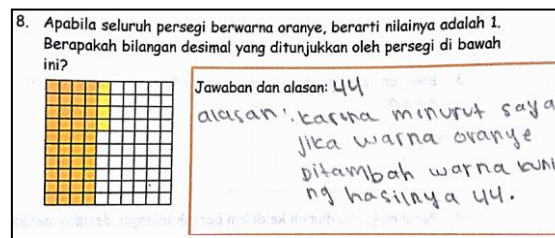 8. Apabila seluruh persegi berwarna oranye, berarti nilainya adalah 1.
Berapakah bilangan desimal yang ditunjukkan oleh persegi di bawah
ini?
Jawaban dan alasan: 44
alasan: karina minurut saya
jika warna oranye
Ditambah warna kuni
ng hasilnya 44.